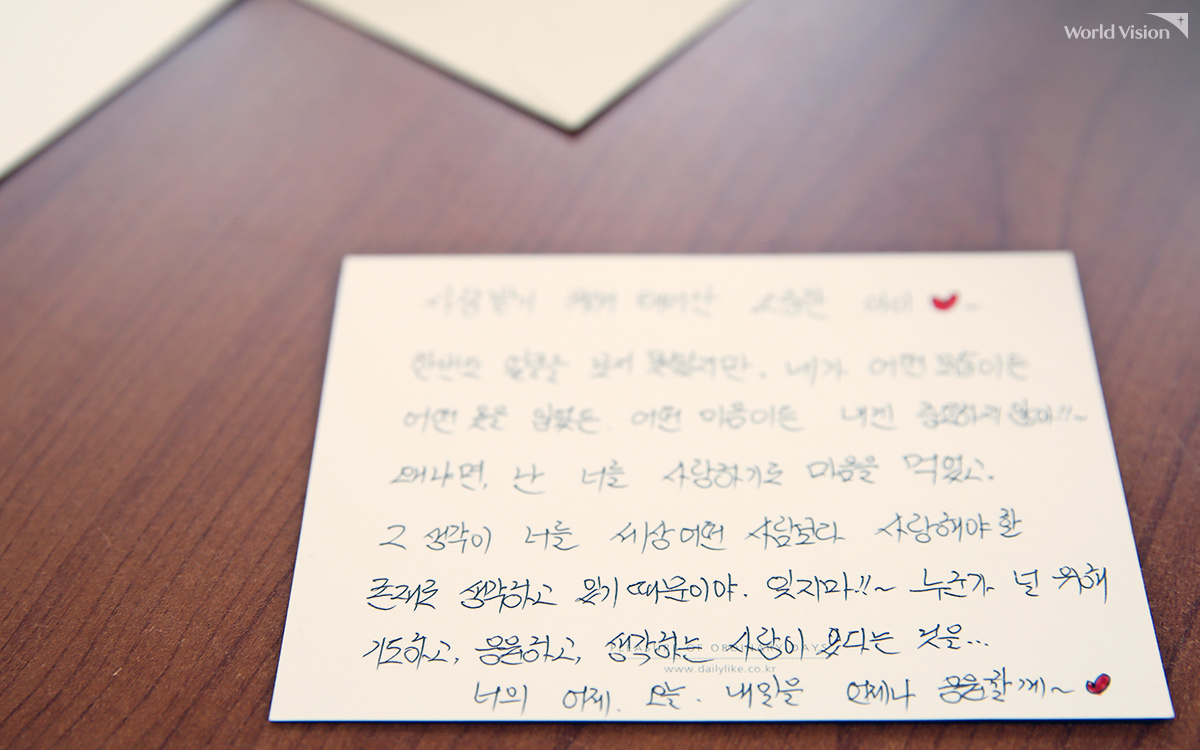 World Vision
한번도 얼굴을 보지 못했지만, 네가 어떤 모습이든
어떤 옷을 입었든, 어떤 이름이든 내겐 중요하지 않아!!~
왜냐면, 난 너를 사랑하기로 마음을 먹었고,
그 생각이 너를 세상 어떤 사람보다 사랑해야 할
존재로 생각하고 있기 때문이야. 잊지마!!~ 누군가 널 위해
기도하고, 응원하고, 생각하는 사람이 있다는 것을...
OF ORDINARY DAYS
www.dailylike.co.kr
너의 어제, 오늘, 내일을 언제나 응원할게~